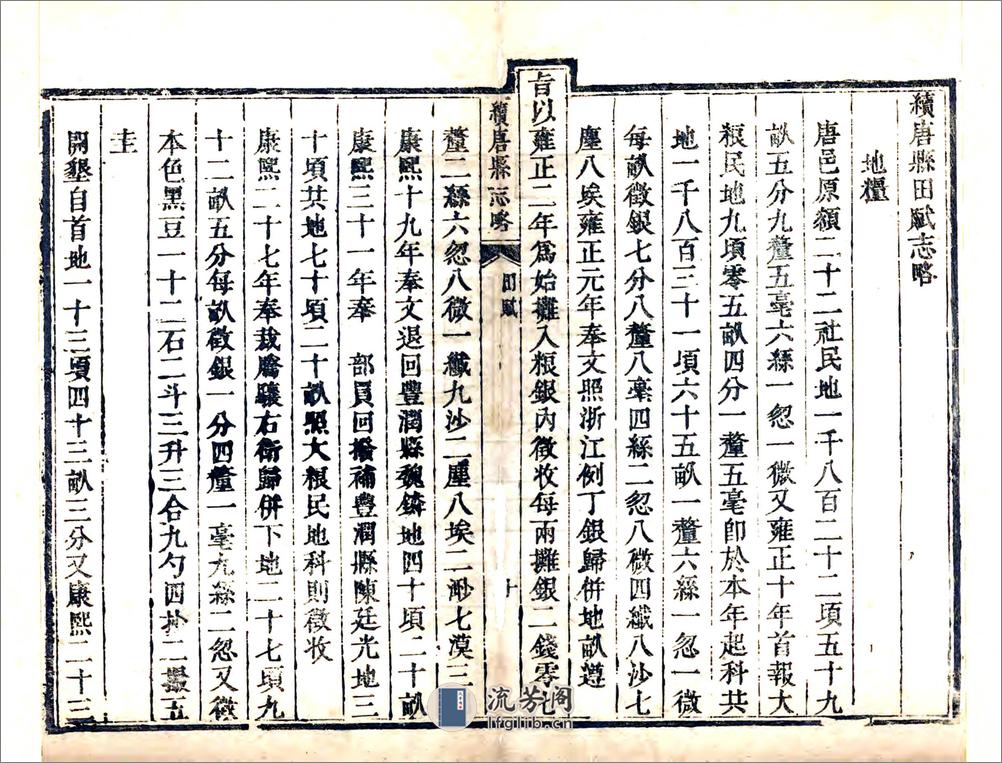 續唐縣田賦志略
地糧
唐邑原額二十二社民地一千八百二十二頃五十九
畝五分九釐五毫六絲一忽一微又雍正十年首報大
粮民地九頃零五畝四分一釐五毫卽於本年起科共
地一千八百三十一頃六十五畝一釐六絲一忽一微
每畝徵銀七分八釐八毫四絲二忽八微四纖八沙七
塵八埃雍正元年奉文照浙江例丁銀歸併地畝遵
旨以雍正二年爲始攤入粮銀內徵收每兩攤銀二錢零七
續唐縣志略 田賦 十
釐二絲六忽八微一纖九沙二塵八埃二渺七漠三
康熙十九年奉文退回豐潤縣魏鏻地四十頃二十畝
康熙三十一年奉 部員回撥補豐潤縣陳廷光地三
十頃共地七十頃二十畝照大粮民地科則徵收
康熙二十七年奉裁騰驤右衛歸併下地二十七頃九
十二畝五分每畝徵銀一分四釐一毫九絲二忽又徵
本色黑豆一十二石二斗三升三合九勺四抄二撮五
圭
開墾自首地一十三頃四十三畝三分又康熙二十三
流芳阁
lfglib.cn